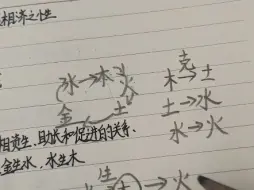 相济之性
水→木→火
木克→土
金 土
土→水
水→火
相资生、助长和促进的关系.
金生水,水生木
生
土→火